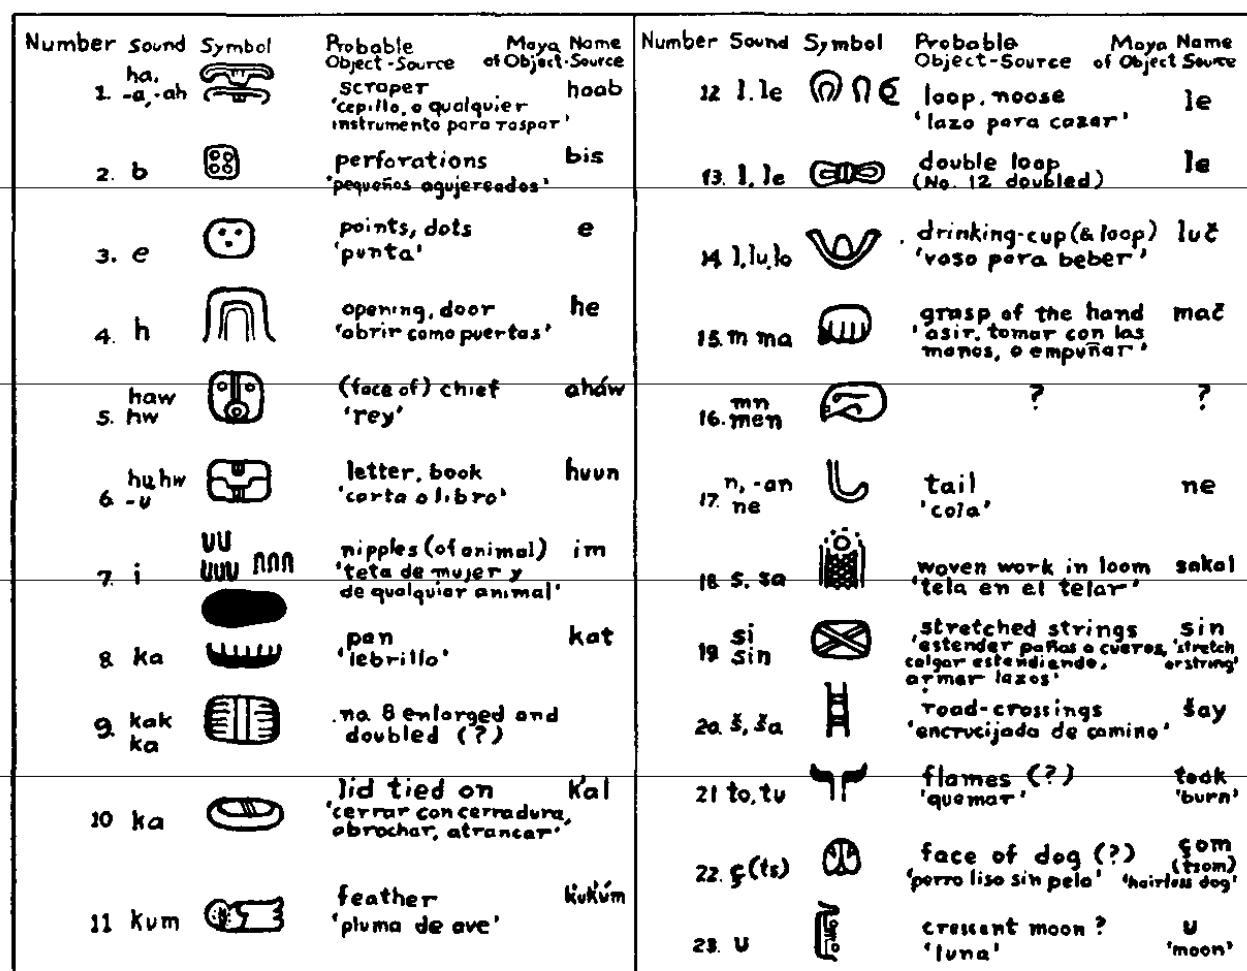 Number Sound Symbol Probable Object-Source Maya Name of Object-Source
1. ha, -a, -ah scraper 'cepillo, o qualquier instrumento para raspar' haab
2. b perforations 'pequeños agujereados' bis
3. e points, dots 'punta' e
4. h opening, door 'abrir como puertas' he
5. haw hw (face of) chief 'rey' aháw
6. hu, hw -u letter, book 'carta o libro' huun
7. i nipples (of animal) 'teta de mujer y de qualquier animal' im
8. ka pan 'lebrillo' kat
9. kak ka no. 8 enlarged and doubled (?)
10 ka lid tied on 'cerrar con cerradura, abrochar, atrancar' k'al
11 kum feather 'pluma de ave' k'uk'úm
Number Sound Symbol Probable Object-Source Maya Name of Object Source
12 l, le loop, noose 'lazo para cazar' le
13. l, le double loop (No. 12 doubled) le
14 l, lu, lo drinking-cup (& loop) 'vaso para beber' luč
15. m ma grasp of the hand 'asir, tomar con las manos, o empuñar' mač
16. mn men ? ?
17. n, -an ne tail 'cola' ne
18 s, sa woven work in loom 'tela en el telar' sakal
19 si sin stretched strings 'estender paños o cueros, colgar estendiendo, armar lazos' sin 'stretch or string'
20. š, ša road-crossings 'encrucijada de camino' šay
21 to, tu flames (?) 'quemar' took 'burn'
22. ç (ts) face of dog (?) 'perro liso sin pelo' çom (tsom) 'hairless dog'
23. u crescent moon ? 'luna' u 'moon'